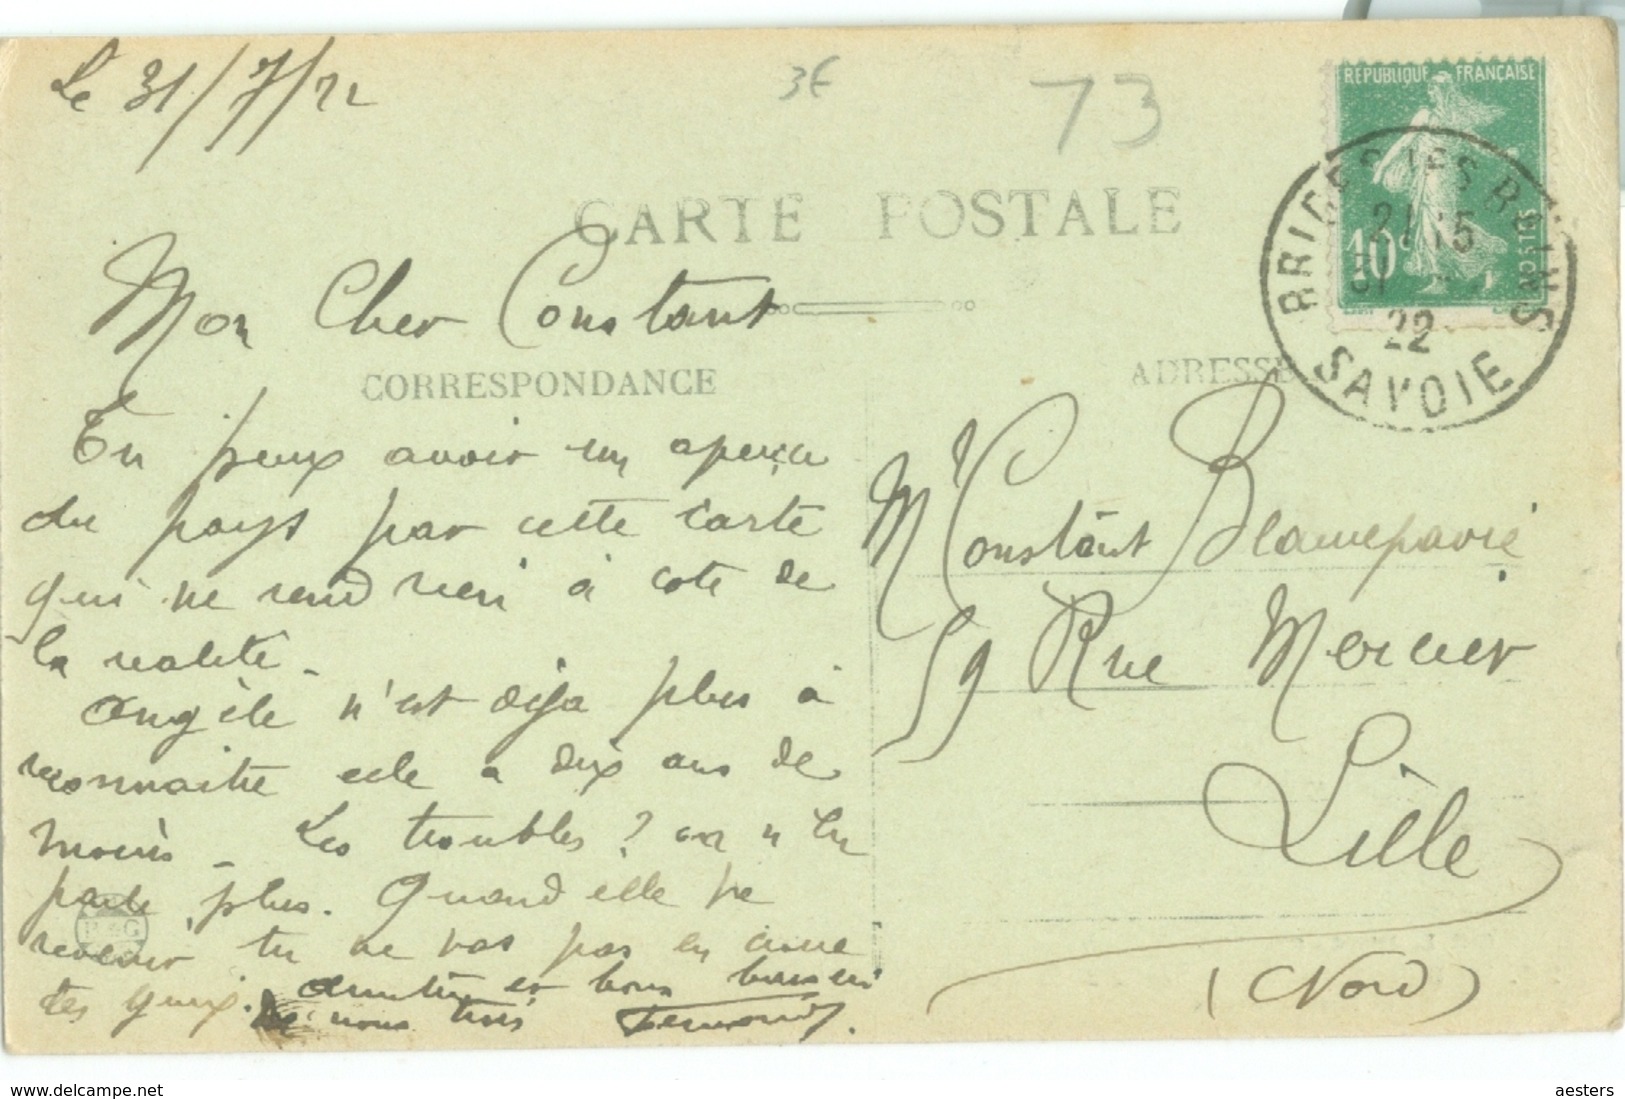 Le 31/7/22
3€
73
RÉPUBLIQUE FRANÇAISE
10c
POSTES
BRIDES LES BAINS
21 15
31
22
SAVOIE
CARTE POSTALE
Mon Cher Constant
CORRESPONDANCE
ADRESSE
Tu peux avoir un aperçu
du pays par cette carte
qui ne rend rien à coté de
la réalité.
Angèle n'est déja plus à
reconnaitre elle a dix ans de
moins. Les troubles? on n'en
parle plus. Quand elle va
revenir tu ne vas pas en croire
tes yeux. Amitiés et bons baisers
de nous trois Fernand.
Mr Constant Blauwepavié
59 Rue Mercier
Lille
(Nord)
www.delcampe.net
aesters